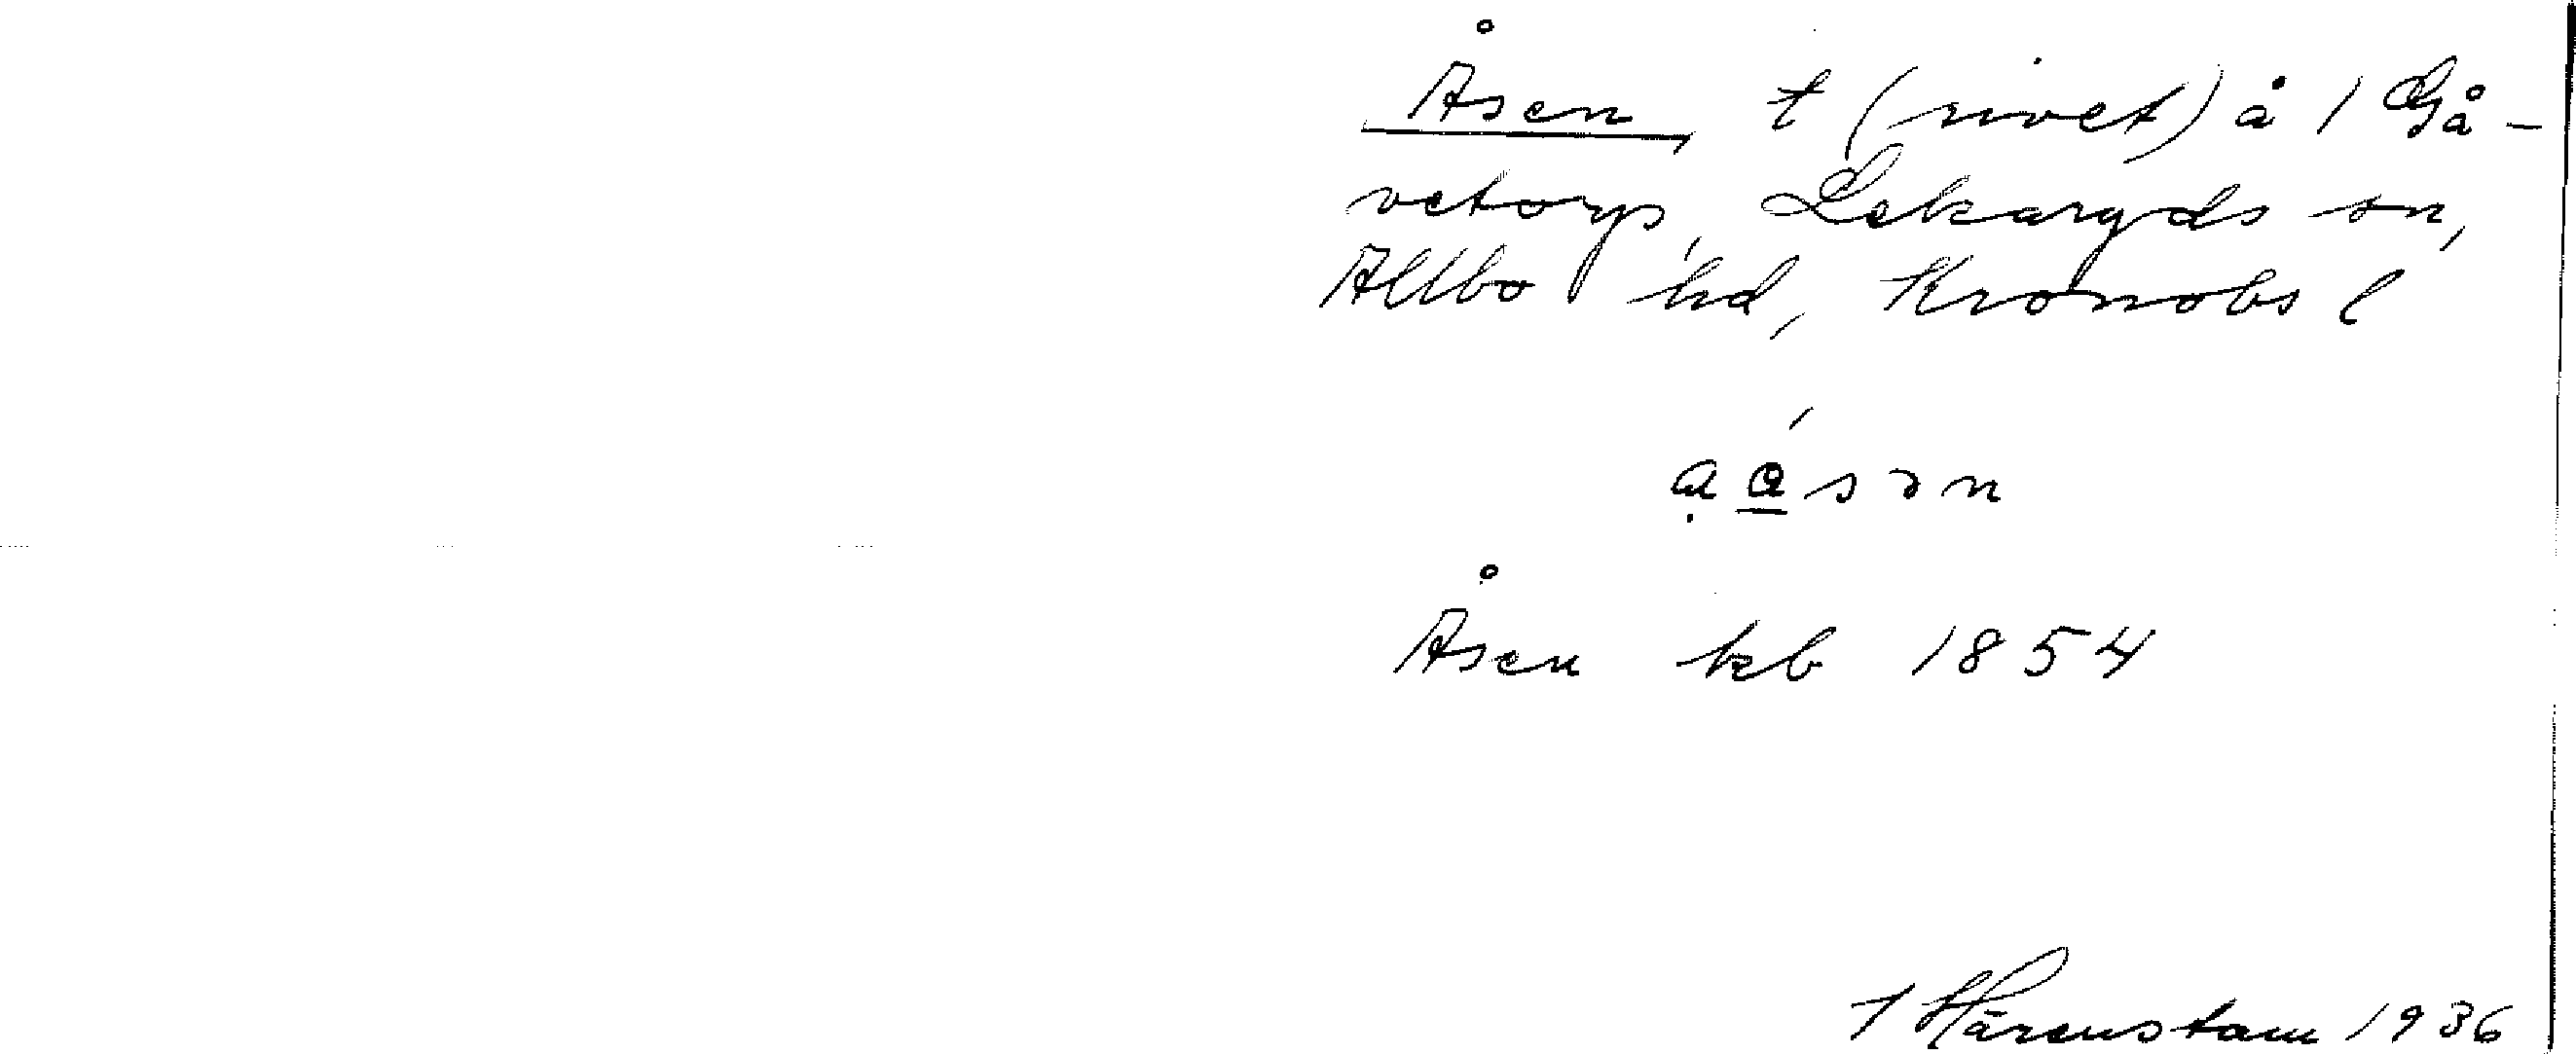 Åsen, t (rivet) å 1 Gå-
vetorp, Lekaryds sn,
Allbo hd, Kronobs l
ạo̲´sən
Åsen kb 1854
I Härenstam 1936